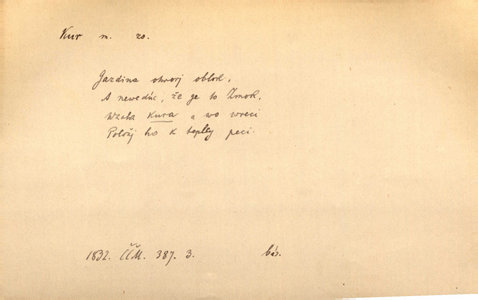 Kur m. zo.
Gazdina otvorj oblok,
A newediac, že ge to Zmok,
Wzala Kura a wo wreci
Položj ho k teplég peci.
1832. ČČM. 387. 3. bás.